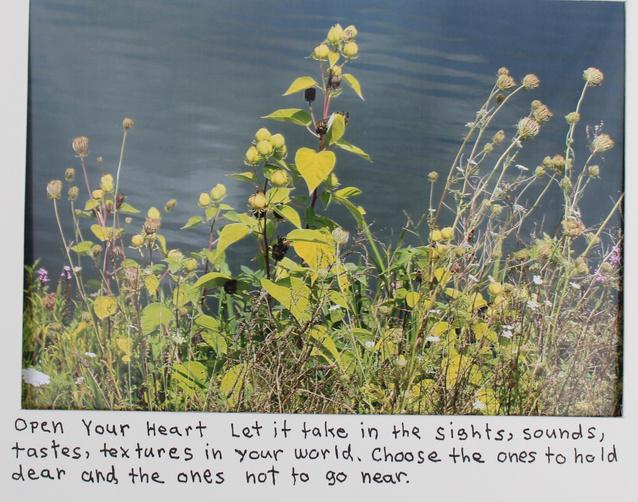 Open Your Heart Let it take in the sights, sounds,
tastes, textures in your world. Choose the ones to hold
dear and the ones not to go near.